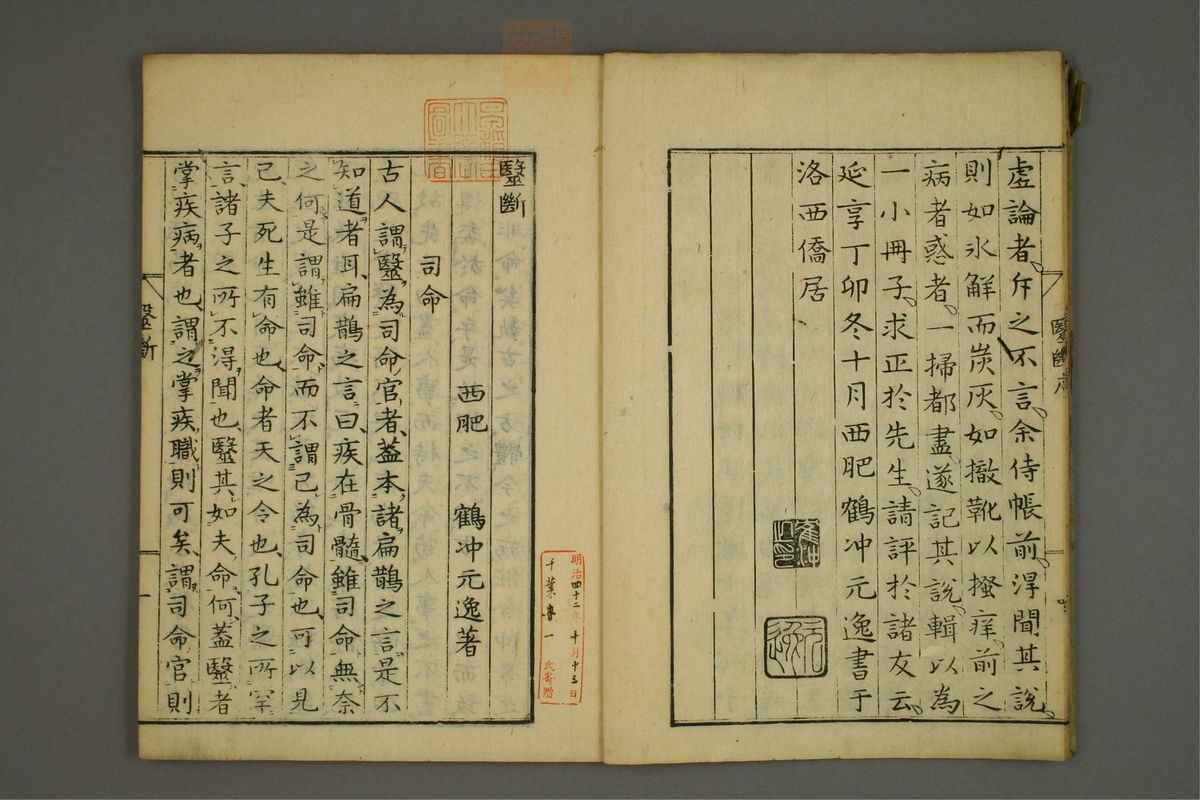 虛論者斥之不言余侍帳前淂聞其說
則如氷解而炭灰如撤靴以搔痒前之
病者惑者一掃都盡遂記其說輯以為
一小冊子求正於先生請評於諸友云
延享丁卯冬十月西肥鶴冲元逸書于
洛西僑居
醫斷序
醫斷
司命
西肥 鶴冲元逸著
古人謂醫為司命官者蓋本諸扁鵲之言是不
知道者耳扁鵲之言曰疾在骨髓雖司命無奈
之何是謂雖司命而不謂己為司命也可以見
已夫死生有命也命者天之令也孔子之所罕
言諸子之所不淂聞也醫其如夫命何蓋醫者
掌疾病者也謂之掌疾職則可矣謂司命官則
醫斷
一
明治四十二年十月十三日
千葉 一 氏寄贈